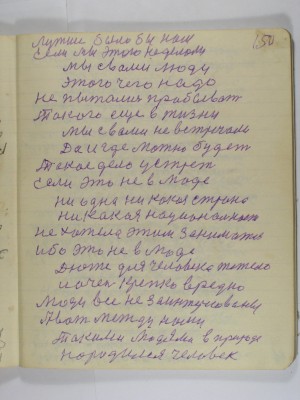 150
лутше было бы нам
если мы этого неделали
мы с вами люди
этого чего надо
не пытались пробывать
такого еще в жизни
мы с вами не встречали
Да и где можно будет
такое дело
если это не в моде
ни одна ни какая страна
ни какая
не хотела этим заниматся
ибо это не в моде
для человека тяжело
очень крепко вредно
люди все не
между ними
такими людями в природе
народился человек